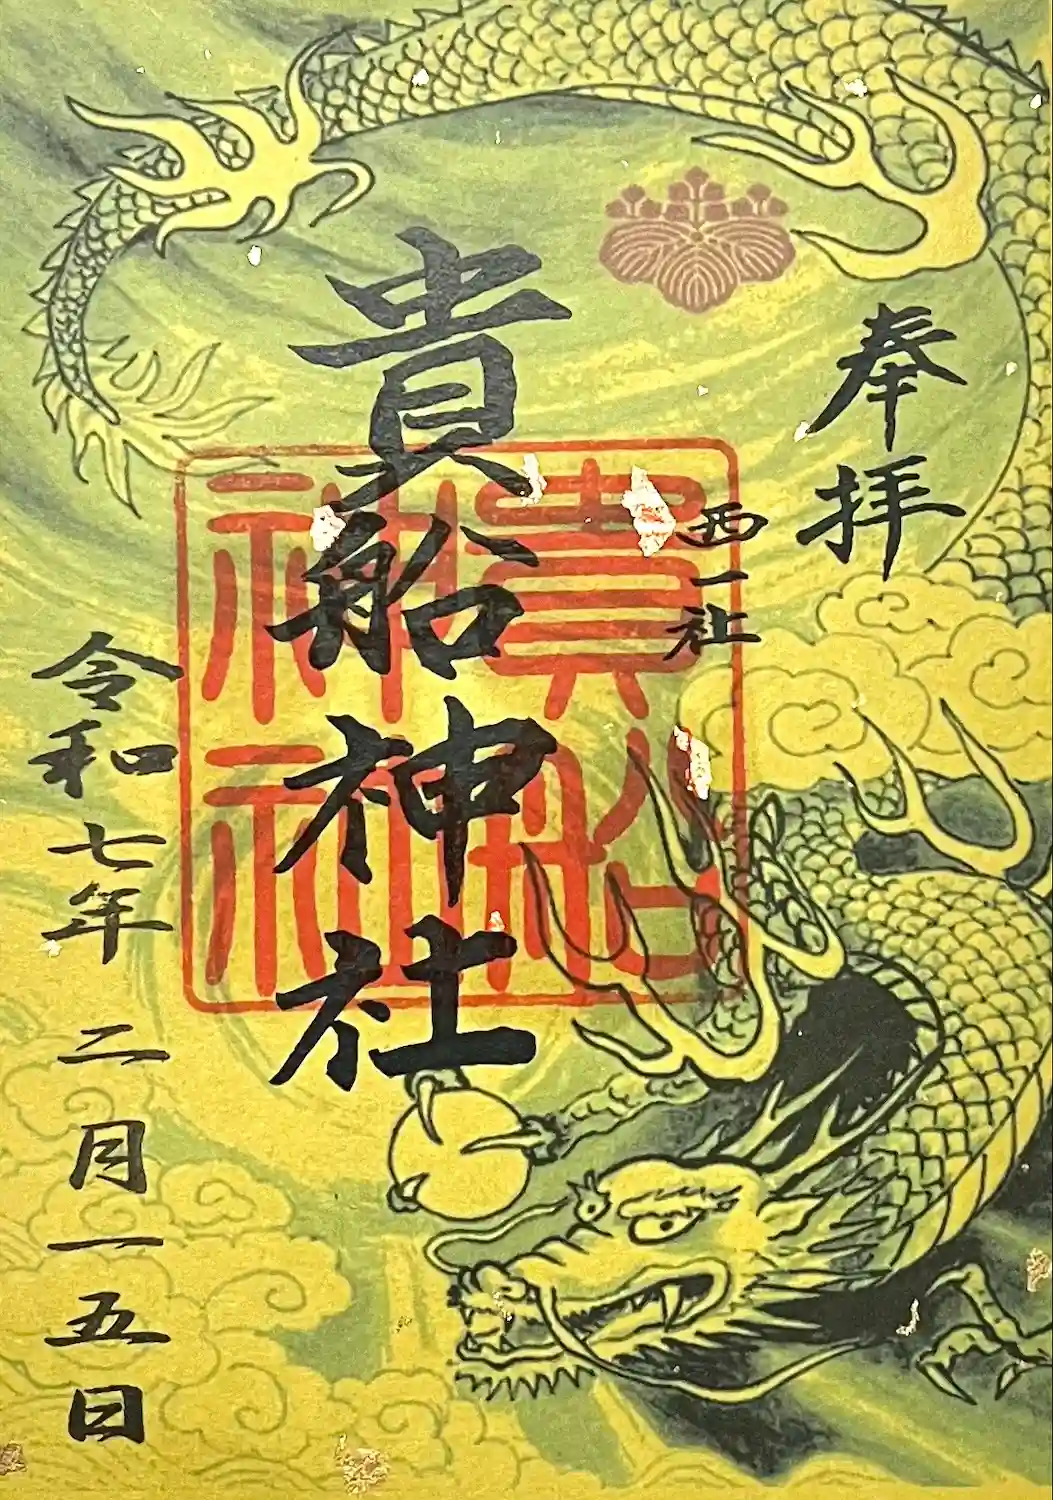 奉拝
西一社
貴船神社
貴船
神社
令和七年 二月一五日